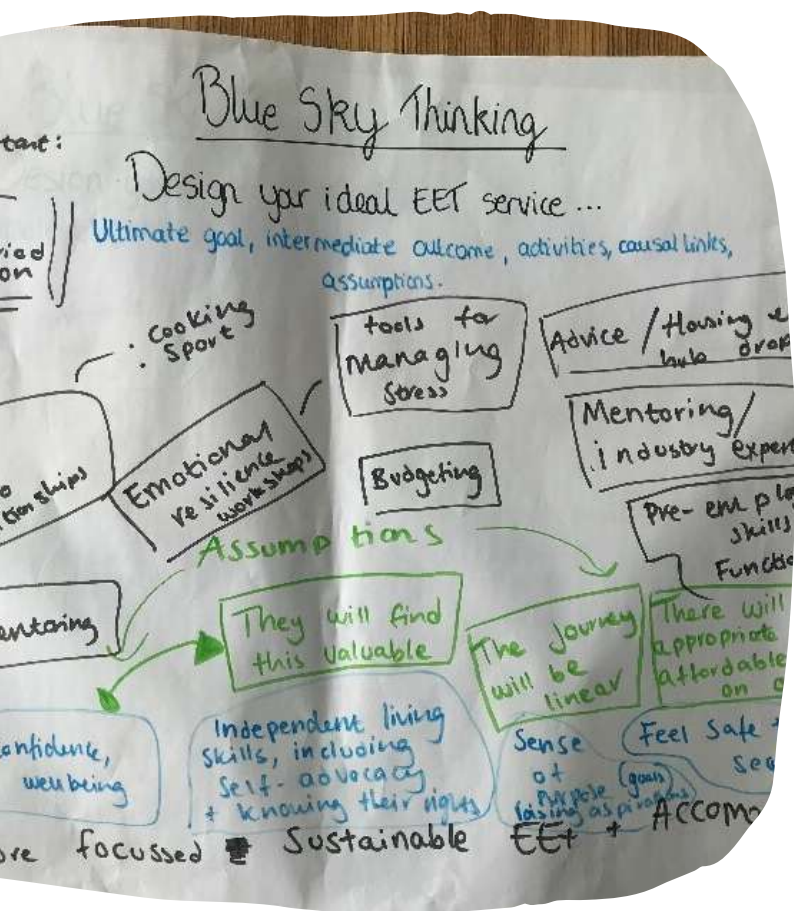 Blue Sky Thinking
Design your ideal EET service...
Ultimate goal, intermediate outcome, activities, causal links,
assumptions.
• Cooking
• Sport
tools for
managing
stress
Advice / Housing
hub
Mentoring/
industry
Emotional
resilience
workshops
Budgeting
Pre-
skills
Assumptions
They will find
this valuable
The journey
will be
linear
There will
appropriate
affordable
on
wellbeing
Independent living
skills, including
self-advocacy
+ knowing their rights
Sense
of
purpose (goals
raising aspirations)
Feel safe +
focussed
Sustainable EET +